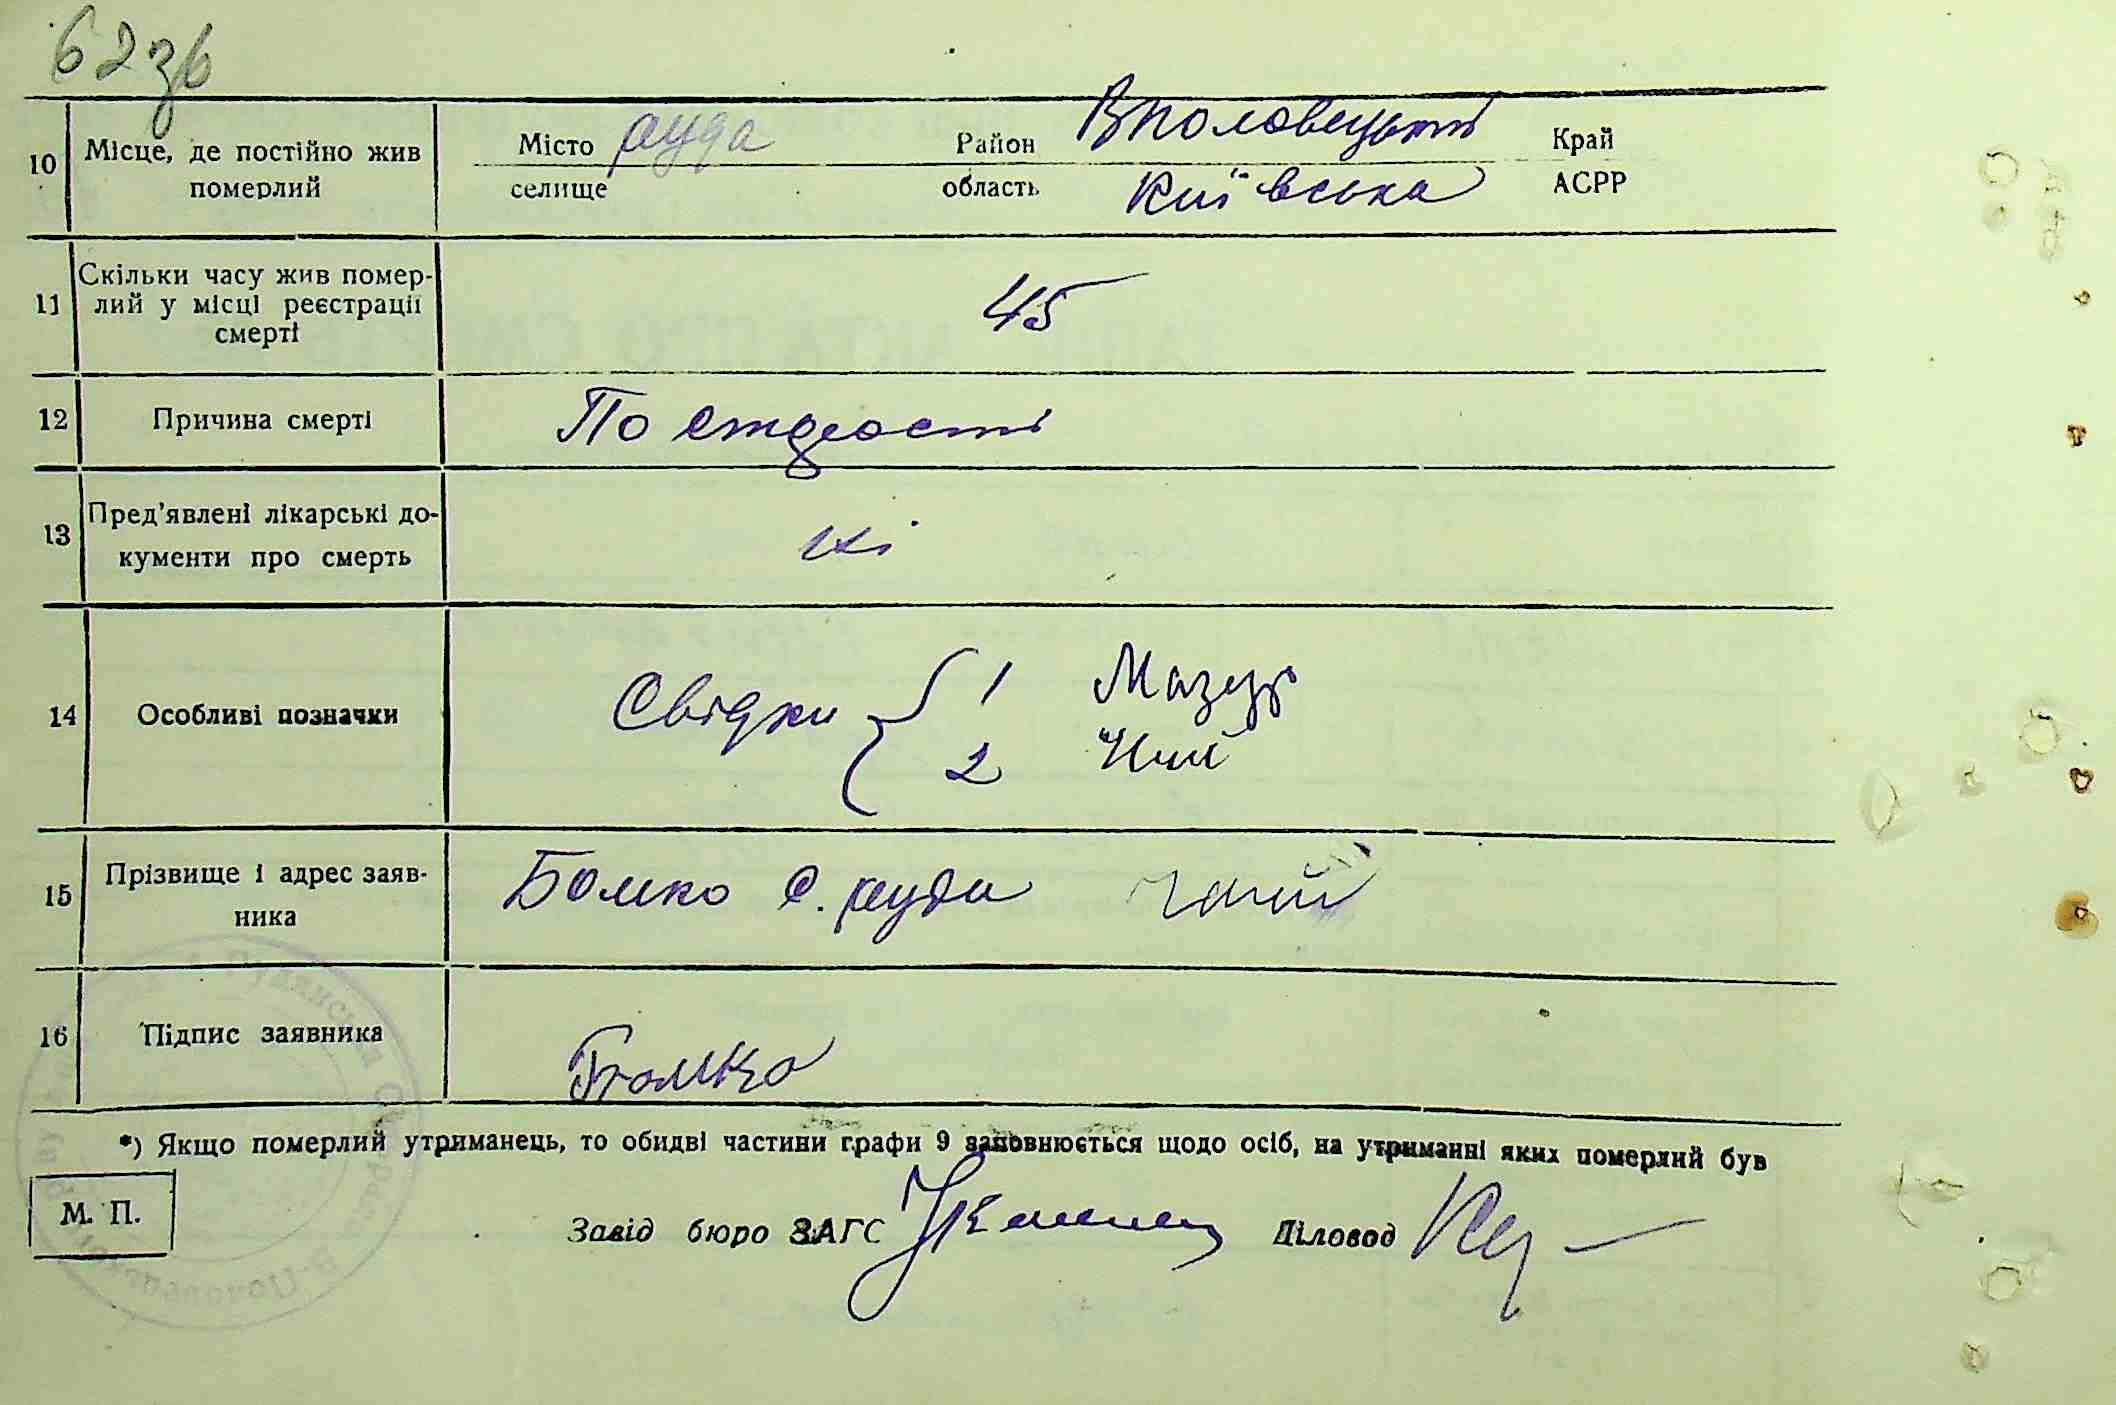 62зв
10 Місце, де постійно жив померлий Місто руда Район Вполовецький Край
селище область Київська АСРР
11 Скільки часу жив помер-
лий у місці реєстрації
смерті 45
12 Причина смерті По старості
13 Пред'явлені лікарські до-
кументи про смерть ні
14 Особливі позначки Свідки 1 Мазур
2 Чий
15 Прізвище і адрес заяв-
ника Бомко С. руда
16 Підпис заявника Бомко
*) Якщо померлий утриманець, то обидві частини графи 9 заповнюється щодо осіб, на утриманні яких померлий був
М. П.
Завід бюро ЗАГС Діловод